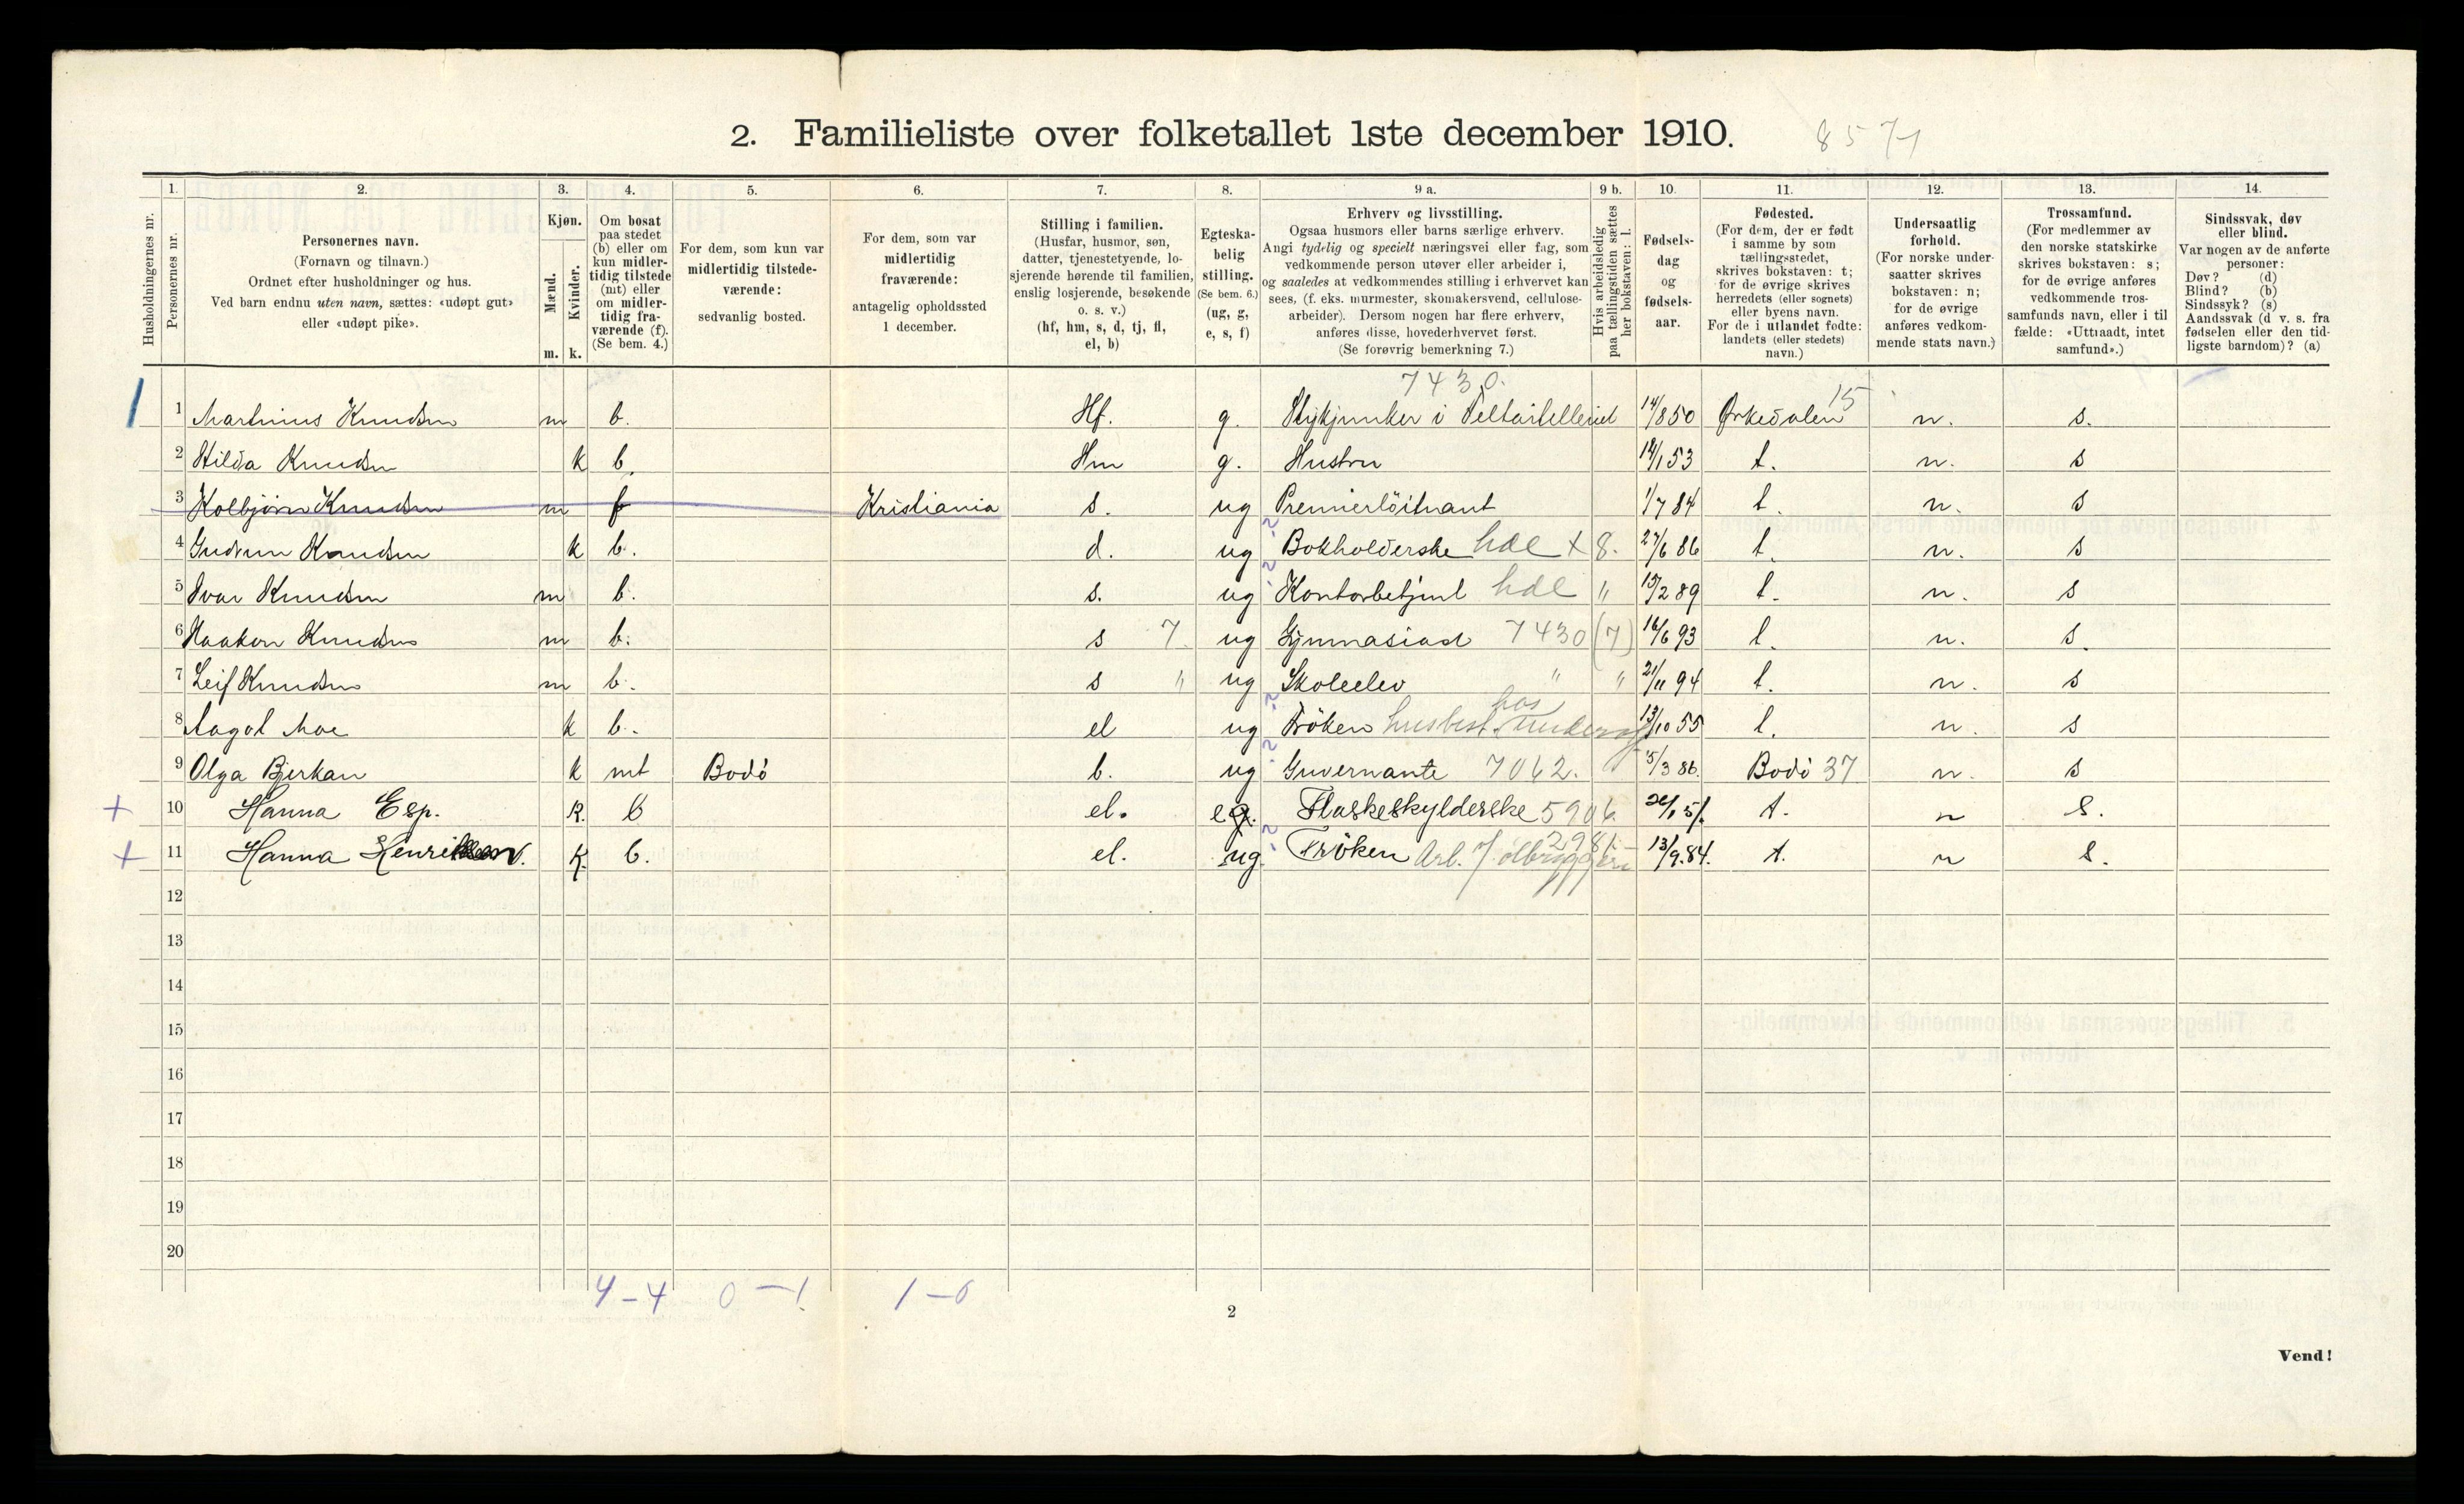 2. Familieliste over folketallet 1ste december 1910. 8571
Husholdningernes nr.
1. Personernes nr.
2. Personernes navn. (Fornavn og tilnavn.) Ordnet efter husholdninger og hus. Ved barn endnu uten navn, sættes: «udøpt gut» eller «udøpt pike».
3. Kjøn. Mænd. m. Kvinder. k.
4. Om bosat paa stedet (b) eller om kun midlertidig tilstede (mt) eller om midlertidig fraværende (f). (Se bem. 4.)
5. For dem, som kun var midlertidig tilstedeværende: sedvanlig bosted.
6. For dem, som var midlertidig fraværende: antagelig opholdssted 1 december.
7. Stilling i familien. (Husfar, husmor, søn, datter, tjenestetyende, losjerende hørende til familien, enslig losjerende, besøkende o. s. v.) (hf, hm, s, d, tj, fl, el, b)
8. Egteskabelig stilling. (Se bem. 6.) (ug, g, e, s, f)
9 a. Erhverv og livsstilling. Ogsaa husmors eller barns særlige erhverv. Angi tydelig og specielt næringsvei eller fag, som vedkommende person utøver eller arbeider i, og saaledes at vedkommendes stilling i erhvervet kan sees, (f. eks. murmester, skomakersvend, cellulosearbeider). Dersom nogen har flere erhverv, anføres disse, hovederhvervet først. (Se forøvrig bemerkning 7.)
9 b. Hvis arbeidsledig paa tællingstiden sættes her bokstaven: l.
10. Fødselsdag og fødselsaar.
11. Fødested. (For dem, der er født i samme by som tællingsstedet, skrives bokstaven: t; for de øvrige skrives herredets (eller sognets) eller byens navn. For de i utlandet fødte: landets (eller stedets) navn.)
12. Undersaatlig forhold. (For norske undersaatter skrives bokstaven: n; for de øvrige anføres vedkommende stats navn.)
13. Trossamfund. (For medlemmer av den norske statskirke skrives bokstaven: s; for de øvrige anføres vedkommende trossamfunds navn, eller i tilfælde: «Uttraadt, intet samfund».)
14. Sindssvak, døv eller blind. Var nogen av de anførte personer: Døv? (d) Blind? (b) Sindssyk? (s) Aandssvak (d v. s. fra fødselen eller den tidligste barndom)? (a)
7430.
1 Martinius Knudsen m b. Hf. g. Stykjunker i Feltartelleriet 14/8 50 Ørkedalen 15 n. s.
2 Hilda Knudsen k b. Hm g. Hustru 14/1 53 t. n. s
3 Kolbjörn Knudsen m f Kristiania s. ug Premierlöitnant 1/7 84 t. n. s
4 Gudrun Knudsen k b. d. ug Bokholderske hdl + 8. 27/6 86 t. n. s
5 Ivar Knudsen m b. s. ug Kontorbetjent hdl " 15/2 89 t. n. s
6 Haakon Knudsen m b. s 7. ug Gymnasiast 7430 (7) 16/6 93 t. n. s.
7 Leif Knudsen m b. s " ug Skoleelev " " 21/11 94 t. n. s
8 Aagot Moe k b. el ug Fröken husbest. hos 13/10 55 t. n. s
9 Olga Bjerkan k mt Bodö b. ug Guvernante 7062. 15/3 86. Bodö 37 n. s
10 Hanna Esp. k. b el. eg. Flaskeskylderske 5906. t. n s.
11 Hanna Henriksen. k. b. el. ug. Fröken Arb. 2981 ölbryggeri 13/9.84. t. n s.
12
13
14
15
16
17
18
19
20
4-4 0-1 1-0
2
Vend!